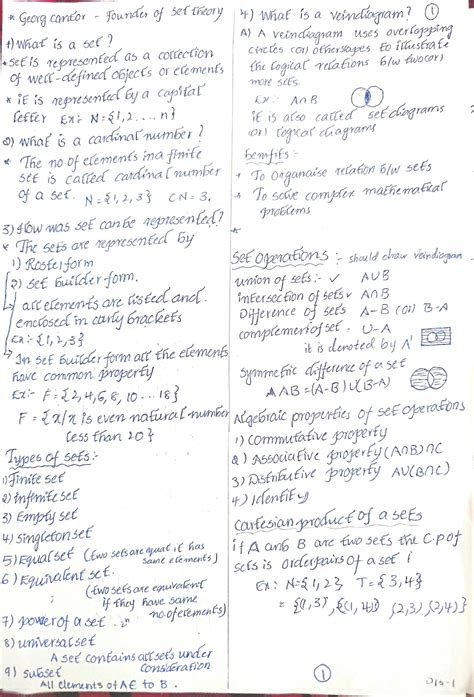 * Georg cantor - Founder of set theory
1) What is a set?
* set is represented as a collection
of well-defined objects or elements
* it is represented by a capital
letter Ex:- N={1,2....n}
2) What is a cardinal number?
* The no of elements in a finite
set is called cardinal number
of a set. N={1,2,3} CN=3,
3) How was set can be represented?
* The sets are represented by
1) Roster form
2) set builder-form.
all elements are listed and
enclosed in curly brackets
Ex:- {1,2,3}
In set builder form all the elements
have common property
Ex:- F={2,4,6,8,10...18}
F={x/x is even natural number
less than 20}
Types of sets:-
1) Finite set
2) infinite set
3) Empty set
4) singleton set
5) Equal set (two sets are equal it has
same elements)
6) Equivalent set.
(two sets are equivalent
if they have same
no of elements)
7) power of a set
8) universal set
A set contains all sets under
consideration
9) subset
All elements of A∈ to B.
4) What is a veindiagram? 1
A) A veindiagram uses overlapping
circles (or) other shapes to illustrate
the logical relations b/w two (or)
more sets.
Ex:- A∩B
it is also called set diagrams
(or) logical diagrams
benifits:-
* To Organaise relation b/w sets
* To solve complex mathematical
problems
*
Set operations:- should draw veindiagram
union of sets:- ✓ A∪B
intersection of sets ✓ A∩B
Difference of sets A-B (or) B-A
complement of set U-A
it is denoted by A'
Symmetric difference of a set
A∆B=(A-B)∪(B-A)
Algebraic properties of set operations
1) commutative property
2) Associative property (A∩B)∩C
3) Distributive property A∪(B∩C)
4) Identity
Cartesian product of a sets
if A and B are two sets the C.P of
sets is order pairs of a set i
Ex: N={1,2}, T={3,4}
= {(1,3), {(1,4)} (2,3) (2,4)}
1